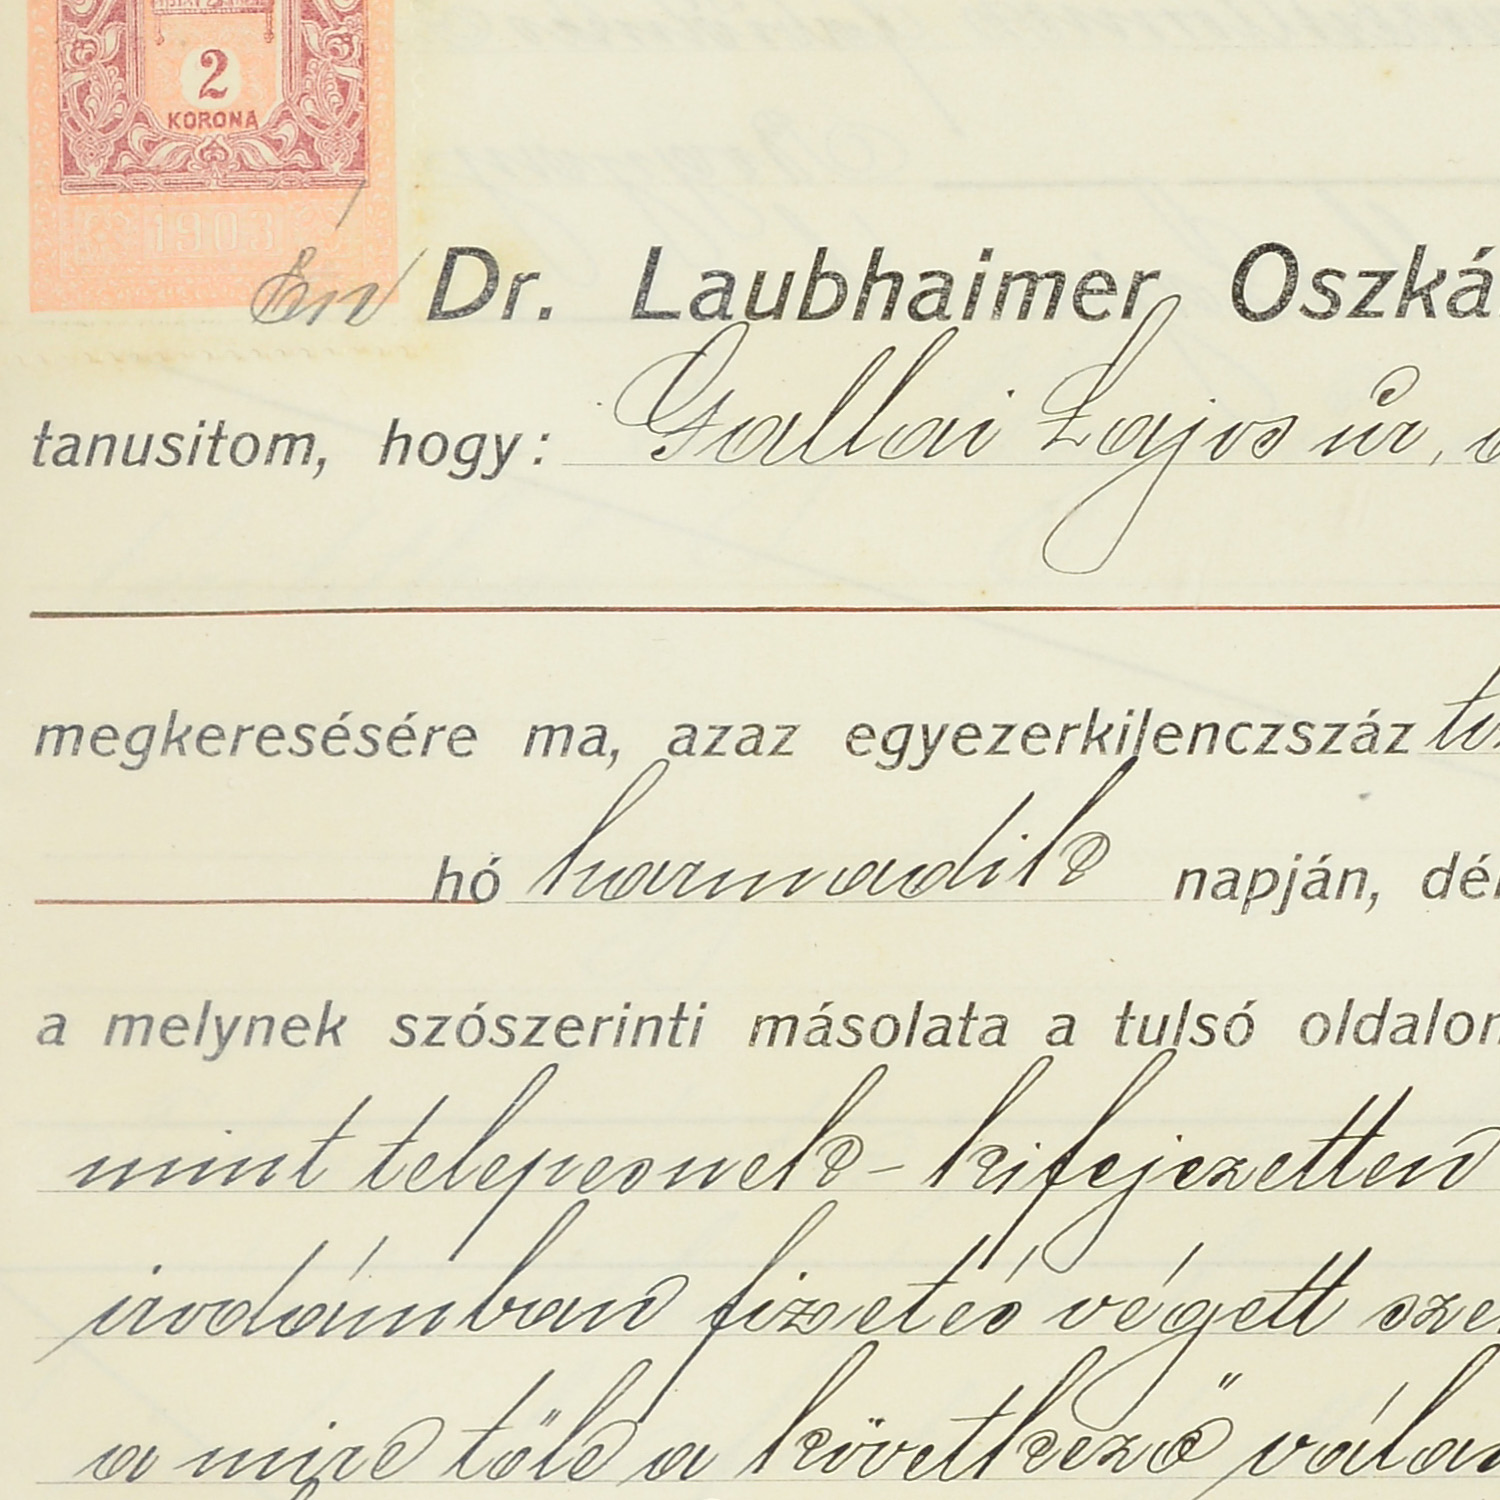 2
KORONA
1903
Én Dr. Laubhaimer Oszká
tanusitom, hogy: Gallai Lajos úr,
megkeresésére ma, azaz egyezerkilenczszáz
hó harmadik napján, dél
a melynek szószerinti másolata a tulsó oldalon
mint telepesnek - kifejezetten
irodámban fizetés végett sze
a mire tőle a következő vála